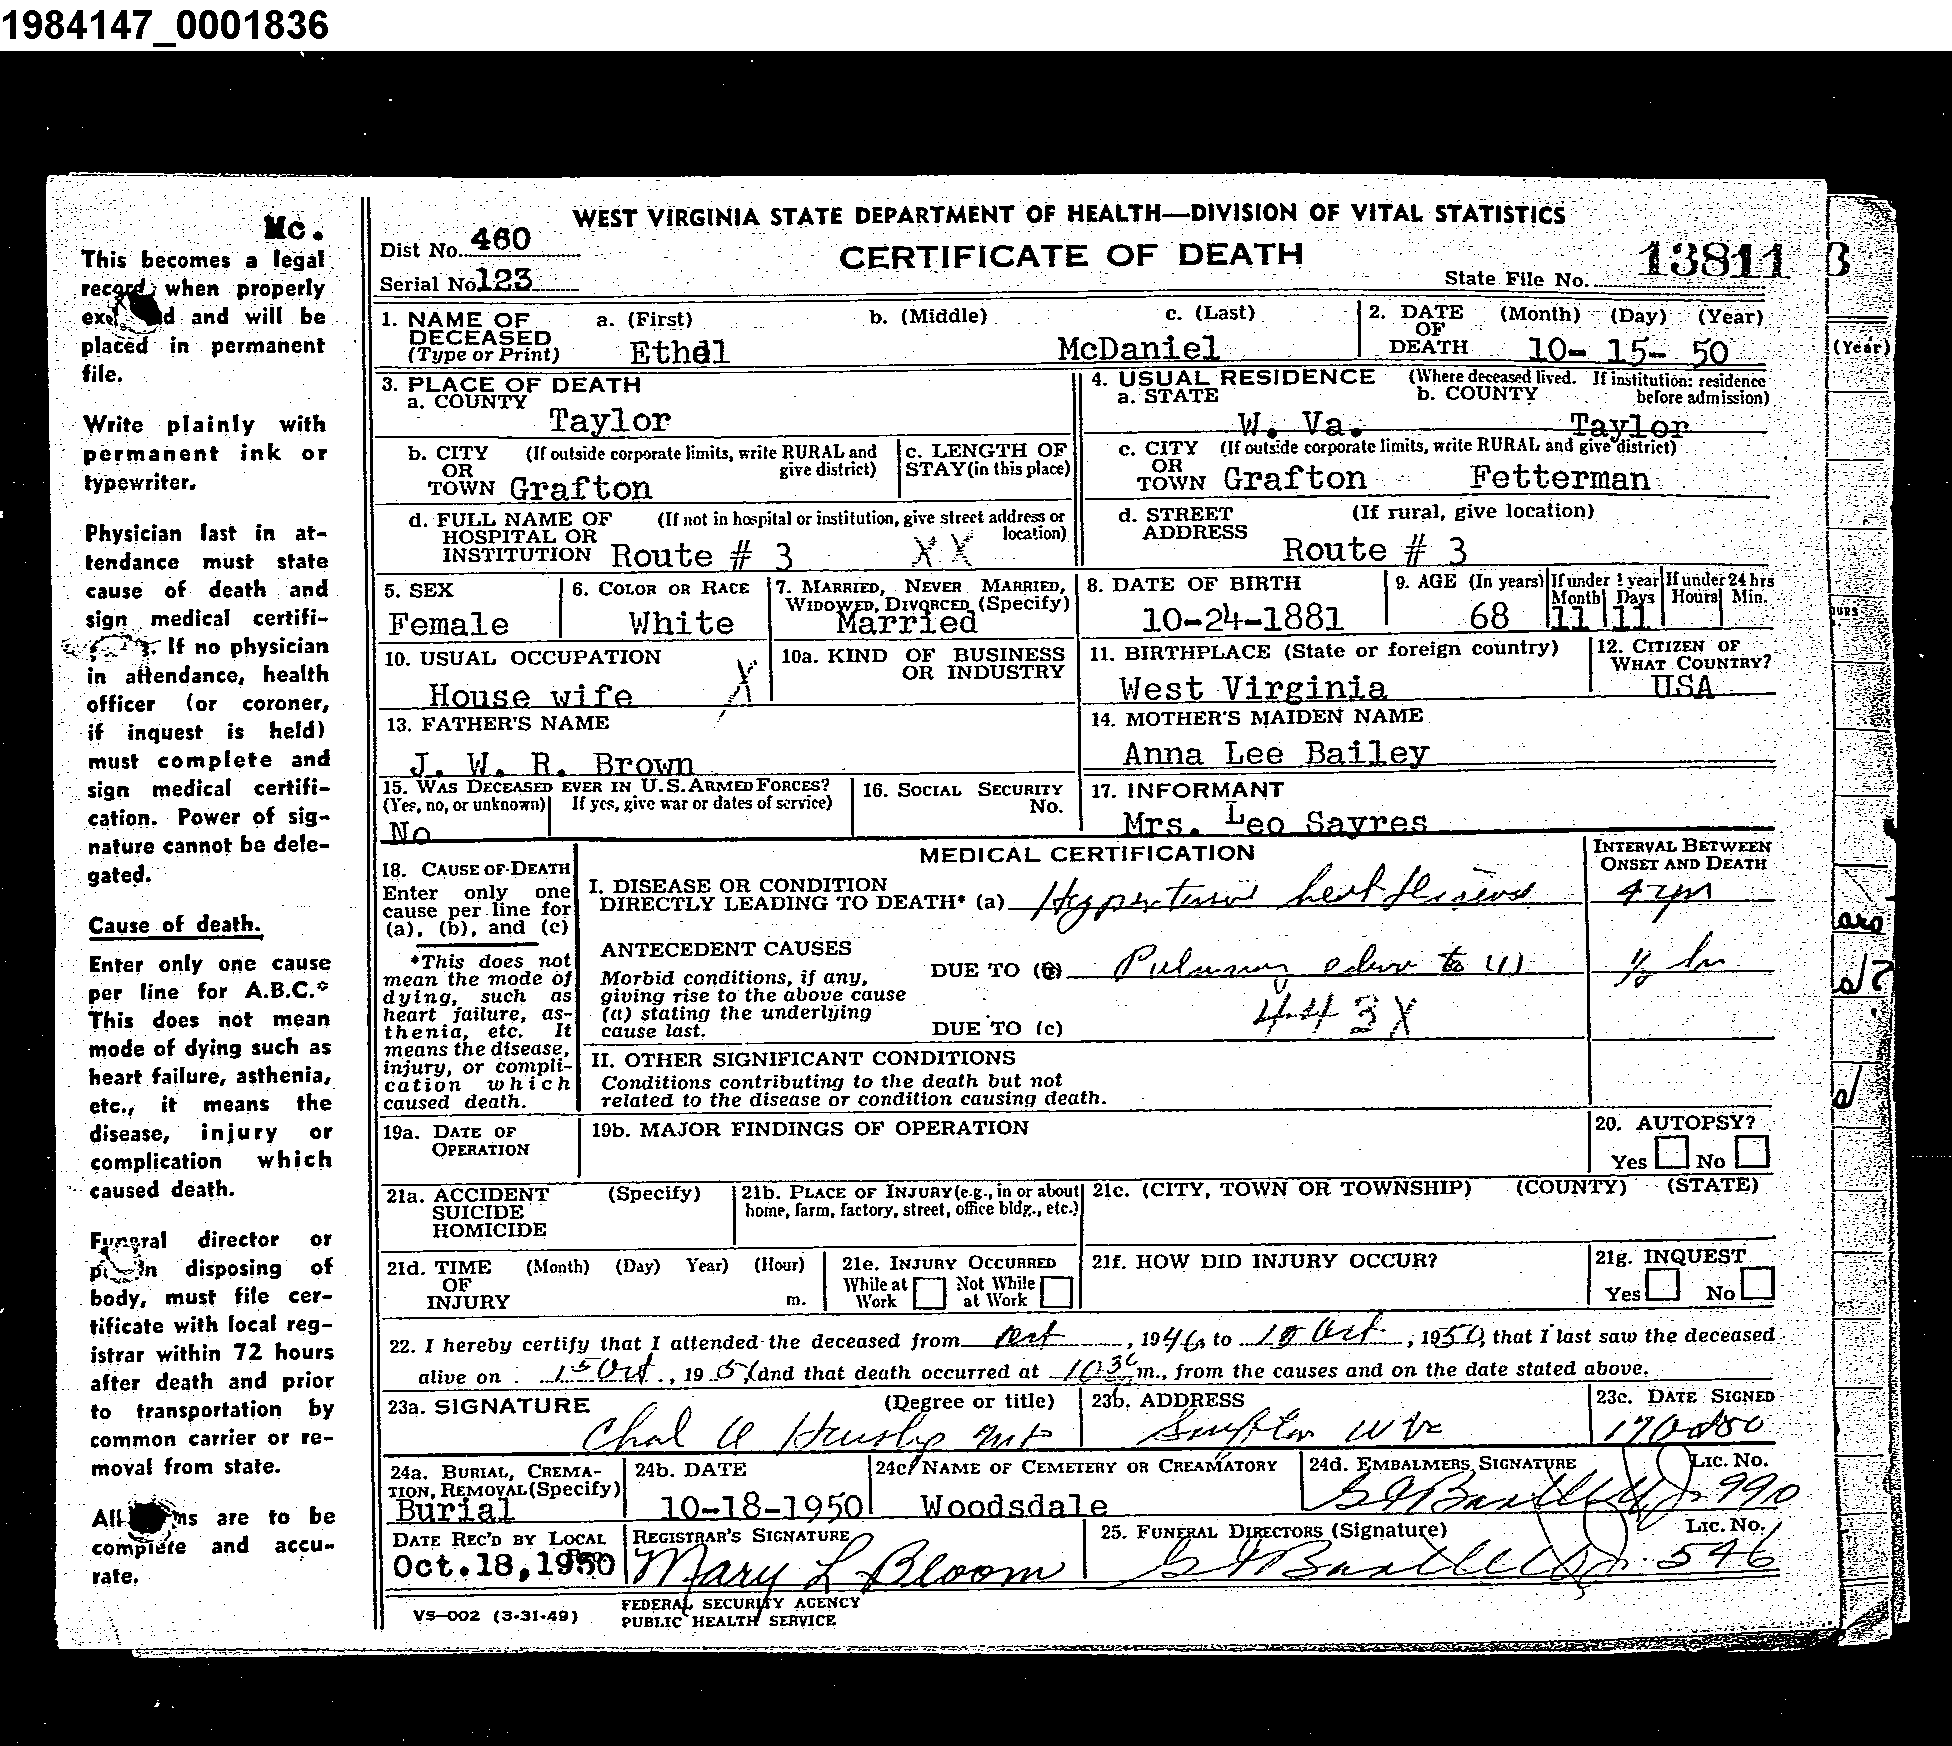 1984147_0001836
Mc.
This becomes a legal
record when properly
and will be
placed in permanent
file.
Write plainly with
permanent ink or
typewriter.
Physician last in at-
tendance must state
cause of death and
sign medical certifi-
If no physician
in attendance, health
officer (or coroner,
if inquest is held)
must complete and
sign medical certifi-
cation. Power of sig-
nature cannot be dele-
gated.
Cause of death.
Enter only one cause
per line for A.B.C.*
This does not mean
mode of dying such as
heart failure, asthenia,
etc., it means the
disease, injury or
complication which
caused death.
Funeral director or
disposing of
body, must file cer-
tificate with local reg-
istrar within 72 hours
after death and prior
to transportation by
common carrier or re-
moval from state.
All are to be
complete and accu-
rate.
WEST VIRGINIA STATE DEPARTMENT OF HEALTH—DIVISION OF VITAL STATISTICS
Dist No. 460
CERTIFICATE OF DEATH
Serial No. 123
State File No. 13811
1. NAME OF DECEASED (Type or Print) a. (First) b. (Middle) c. (Last)
Ethel McDaniel
2. DATE OF DEATH (Month) (Day) (Year)
10- 15- 50
3. PLACE OF DEATH
a. COUNTY
Taylor
4. USUAL RESIDENCE (Where deceased lived. If institution: residence before admission)
a. STATE b. COUNTY
W. Va. Taylor
b. CITY OR TOWN (If outside corporate limits, write RURAL and give district)
Grafton
c. LENGTH OF STAY (in this place)
c. CITY OR TOWN (If outside corporate limits, write RURAL and give district)
Grafton Fetterman
d. FULL NAME OF HOSPITAL OR INSTITUTION (If not in hospital or institution, give street address or location)
Route # 3 XX
d. STREET ADDRESS (If rural, give location)
Route # 3
5. SEX
Female
6. COLOR OR RACE
White
7. MARRIED, NEVER MARRIED, WIDOWED, DIVORCED (Specify)
Married
8. DATE OF BIRTH
10-24-1881
9. AGE (In years) If under 1 year Month Days If under 24 hrs Hours Min.
68 11 11
10. USUAL OCCUPATION
House wife X
10a. KIND OF BUSINESS OR INDUSTRY
11. BIRTHPLACE (State or foreign country)
West Virginia
12. CITIZEN OF WHAT COUNTRY?
USA
13. FATHER'S NAME
J. W. R. Brown
14. MOTHER'S MAIDEN NAME
Anna Lee Bailey
15. WAS DECEASED EVER IN U.S. ARMED FORCES?
(Yes, no, or unknown) If yes, give war or dates of service)
No
16. SOCIAL SECURITY No.
17. INFORMANT
Mrs. Leo Sayres
18. CAUSE OF DEATH
Enter only one
cause per line for
(a), (b), and (c)
*This does not
mean the mode of
dying, such as
heart failure, as-
thenia, etc. It
means the disease,
injury, or compli-
cation which
caused death.
MEDICAL CERTIFICATION
INTERVAL BETWEEN ONSET AND DEATH
I. DISEASE OR CONDITION
DIRECTLY LEADING TO DEATH* (a) Hypertensive heart disease 4 yrs
ANTECEDENT CAUSES
Morbid conditions, if any,
giving rise to the above cause
(a) stating the underlying
cause last.
DUE TO (b) Pulmonary edema to (1) 1/2 hr
443X
DUE TO (c)
II. OTHER SIGNIFICANT CONDITIONS
Conditions contributing to the death but not
related to the disease or condition causing death.
19a. DATE OF OPERATION
19b. MAJOR FINDINGS OF OPERATION
20. AUTOPSY?
Yes No
21a. ACCIDENT SUICIDE HOMICIDE (Specify)
21b. PLACE OF INJURY (e.g., in or about home, farm, factory, street, office bldg., etc.)
21c. (CITY, TOWN OR TOWNSHIP) (COUNTY) (STATE)
21d. TIME OF INJURY (Month) (Day) Year) (Hour) m.
21e. INJURY OCCURRED
While at Work Not While at Work
21f. HOW DID INJURY OCCUR?
21g. INQUEST
Yes No
22. I hereby certify that I attended the deceased from , 1946, to 15 Oct. , 1950, that I last saw the deceased
alive on 15 Oct , 19 50, and that death occurred at 1030 m., from the causes and on the date stated above.
23a. SIGNATURE (Degree or title)
23b. ADDRESS
Grafton W Va
23c. DATE SIGNED
17 Oct 50
24a. BURIAL, CREMATION, REMOVAL (Specify)
Burial
24b. DATE
10-18-1950
24c NAME OF CEMETERY OR CREAMATORY
Woodsdale
24d. EMBALMERS SIGNATURE LIC. NO.
990
DATE REC'D BY LOCAL
Oct.18,1950
REGISTRAR'S SIGNATURE
Mary L Bloom
25. FUNERAL DIRECTORS (Signature) LIC. NO.
546
VS-002 (3-31-49)
FEDERAL SECURITY AGENCY
PUBLIC HEALTH SERVICE
(Year)